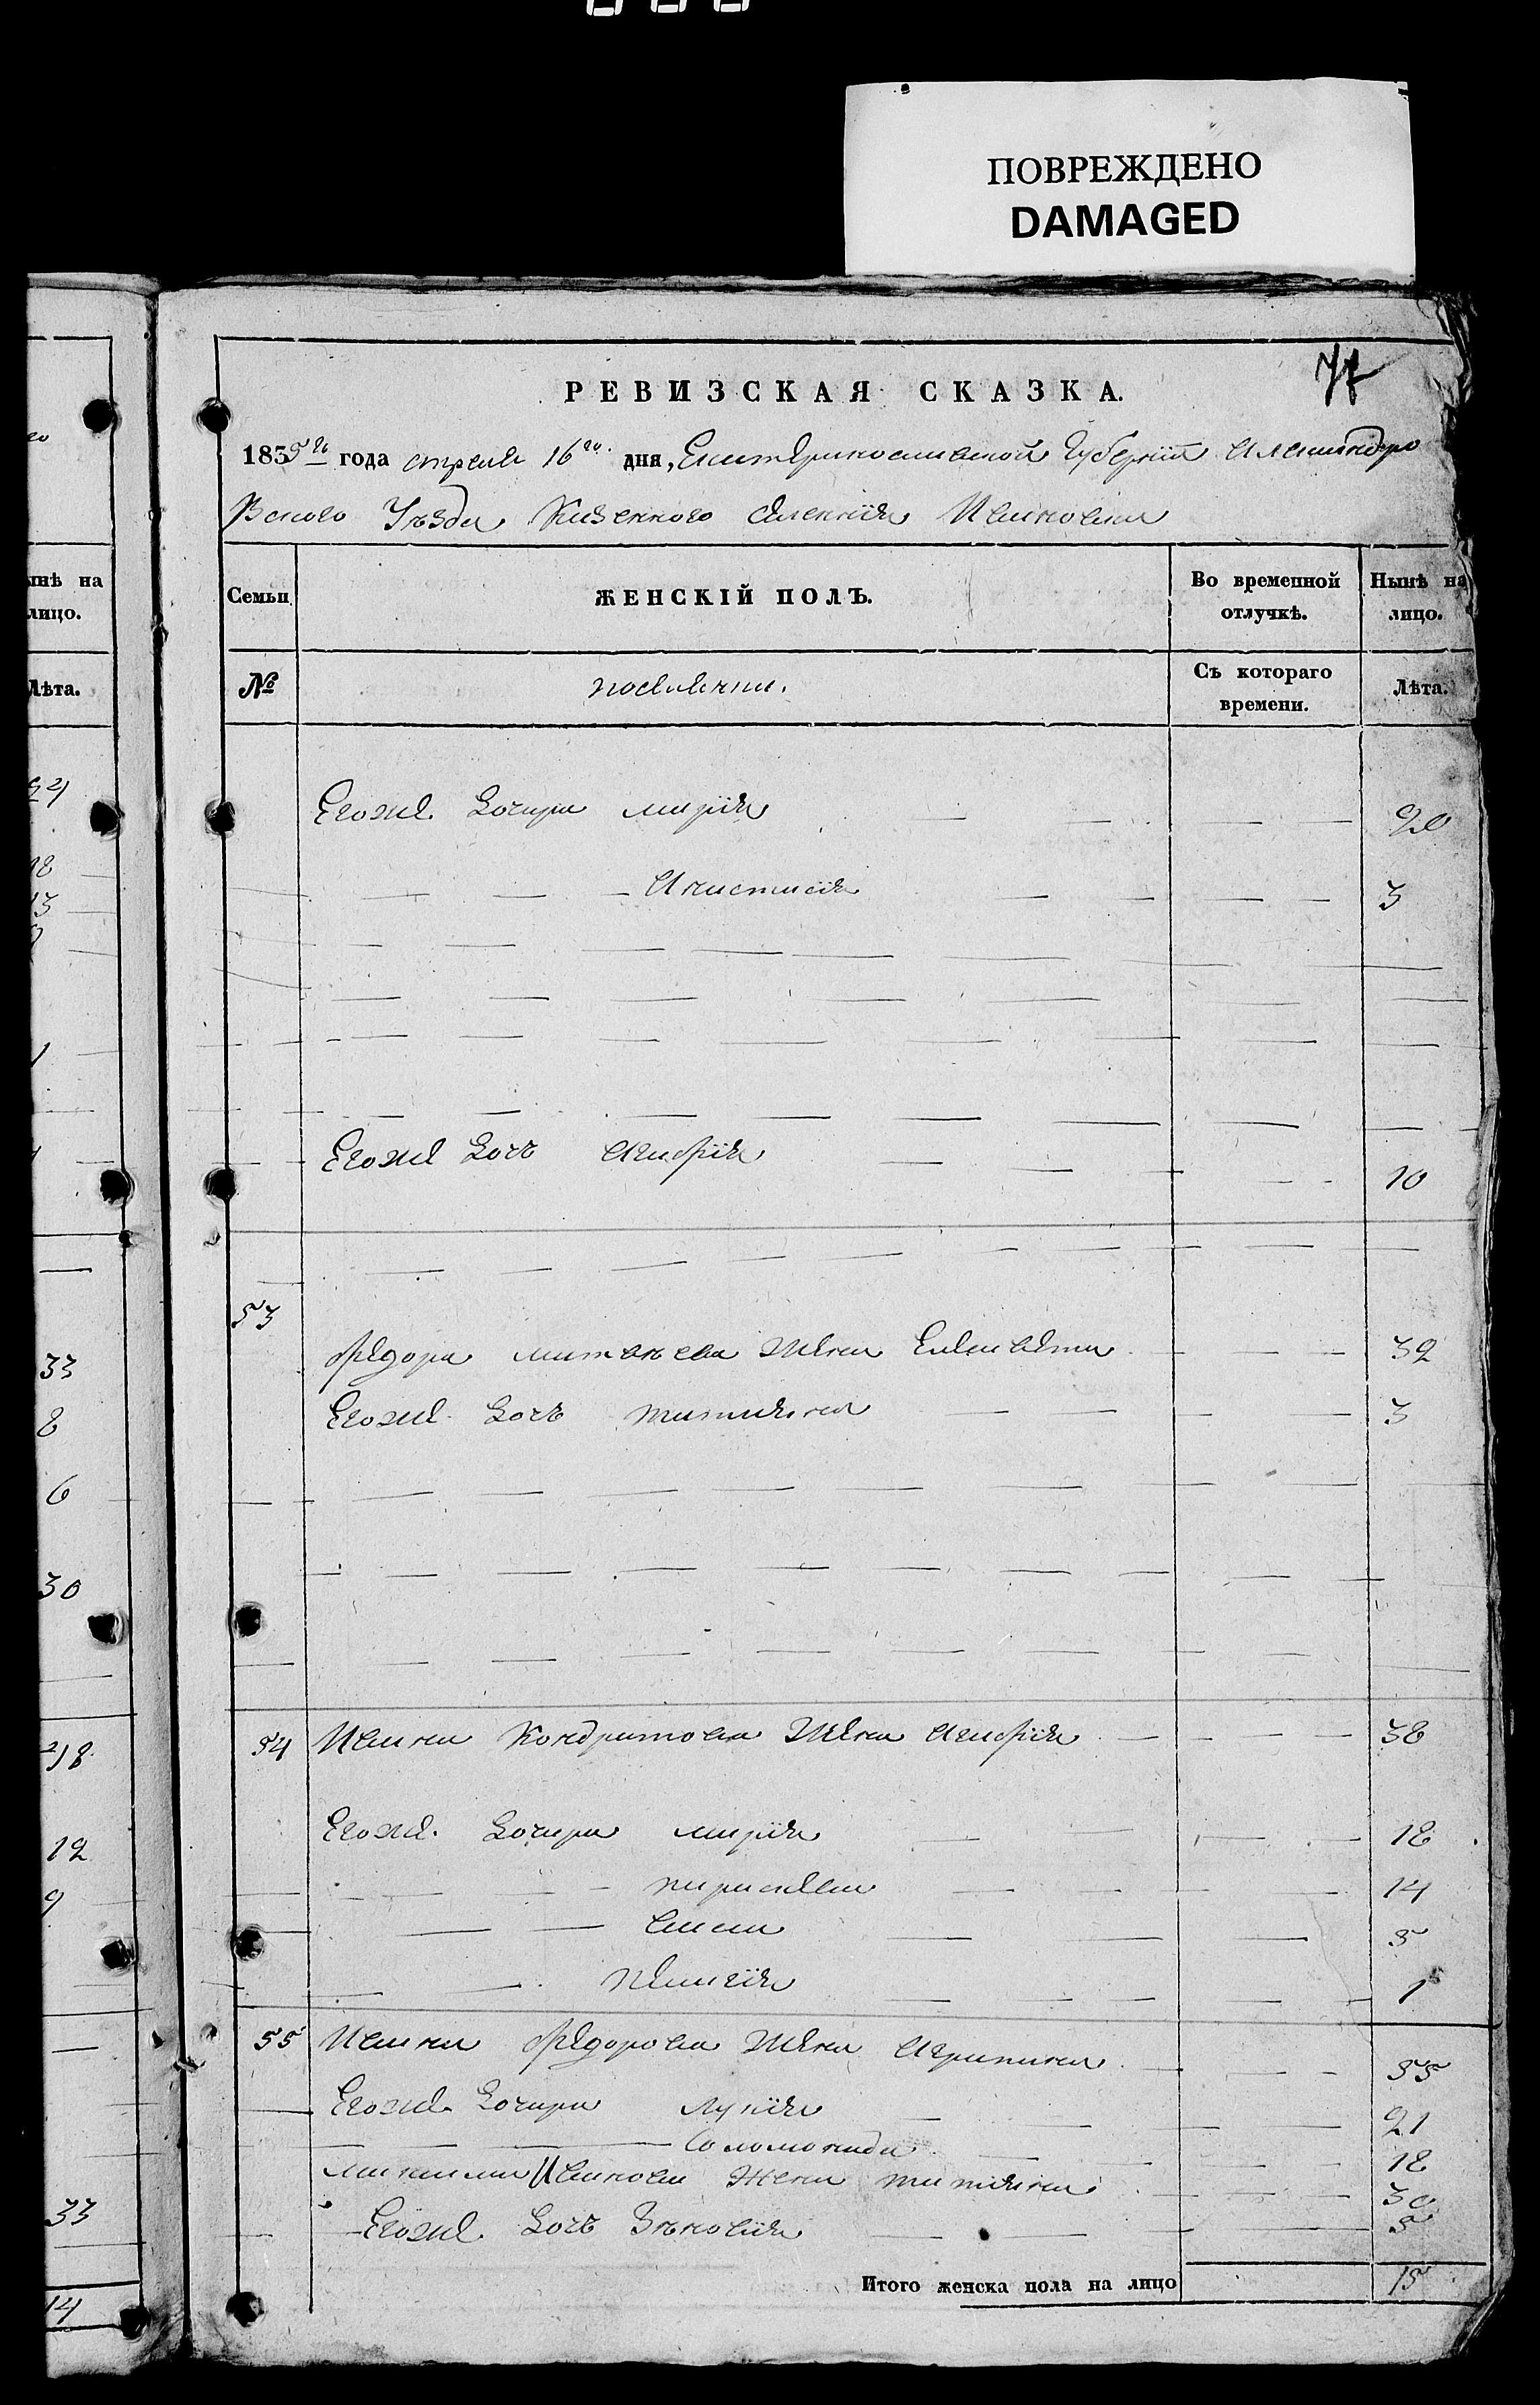 ПОВРЕЖДЕНО
DAMAGED
77
РЕВИЗСКАЯ СКАЗКА.
1835го года апреля 16го дня, Екатеринославской Губернии Александро
Вского Уѣзда Казенного селения Ивановки
ынѣ на
лицо.
Лѣта.
Семьи
ЖЕНСКІЙ ПОЛЪ.
Во временной отлучкѣ.
Нынѣ на лицо.
№
поселяне.
Съ котораго времени.
Лѣта.
Егоже дочери Мария 20
Анастасия 3
Егоже дочь Агафия 10
53
Федора Матвѣева жена Елисавета 32
Егоже дочь татияна 3
54 Ивана Кондратова жена Агафия 38
Егоже дочери Мария 18
параскева 14
Васса 5
пелагия 1
55 Ивана Федорова жена Агрипина 55
Егоже дочери Лукия 21
Соломонида 18
Максима Иванова жена татияна 30
Егоже дочь Зѣновия 5
Итого женска пола на лицо 15
33
8
6
30
12
9
33
14